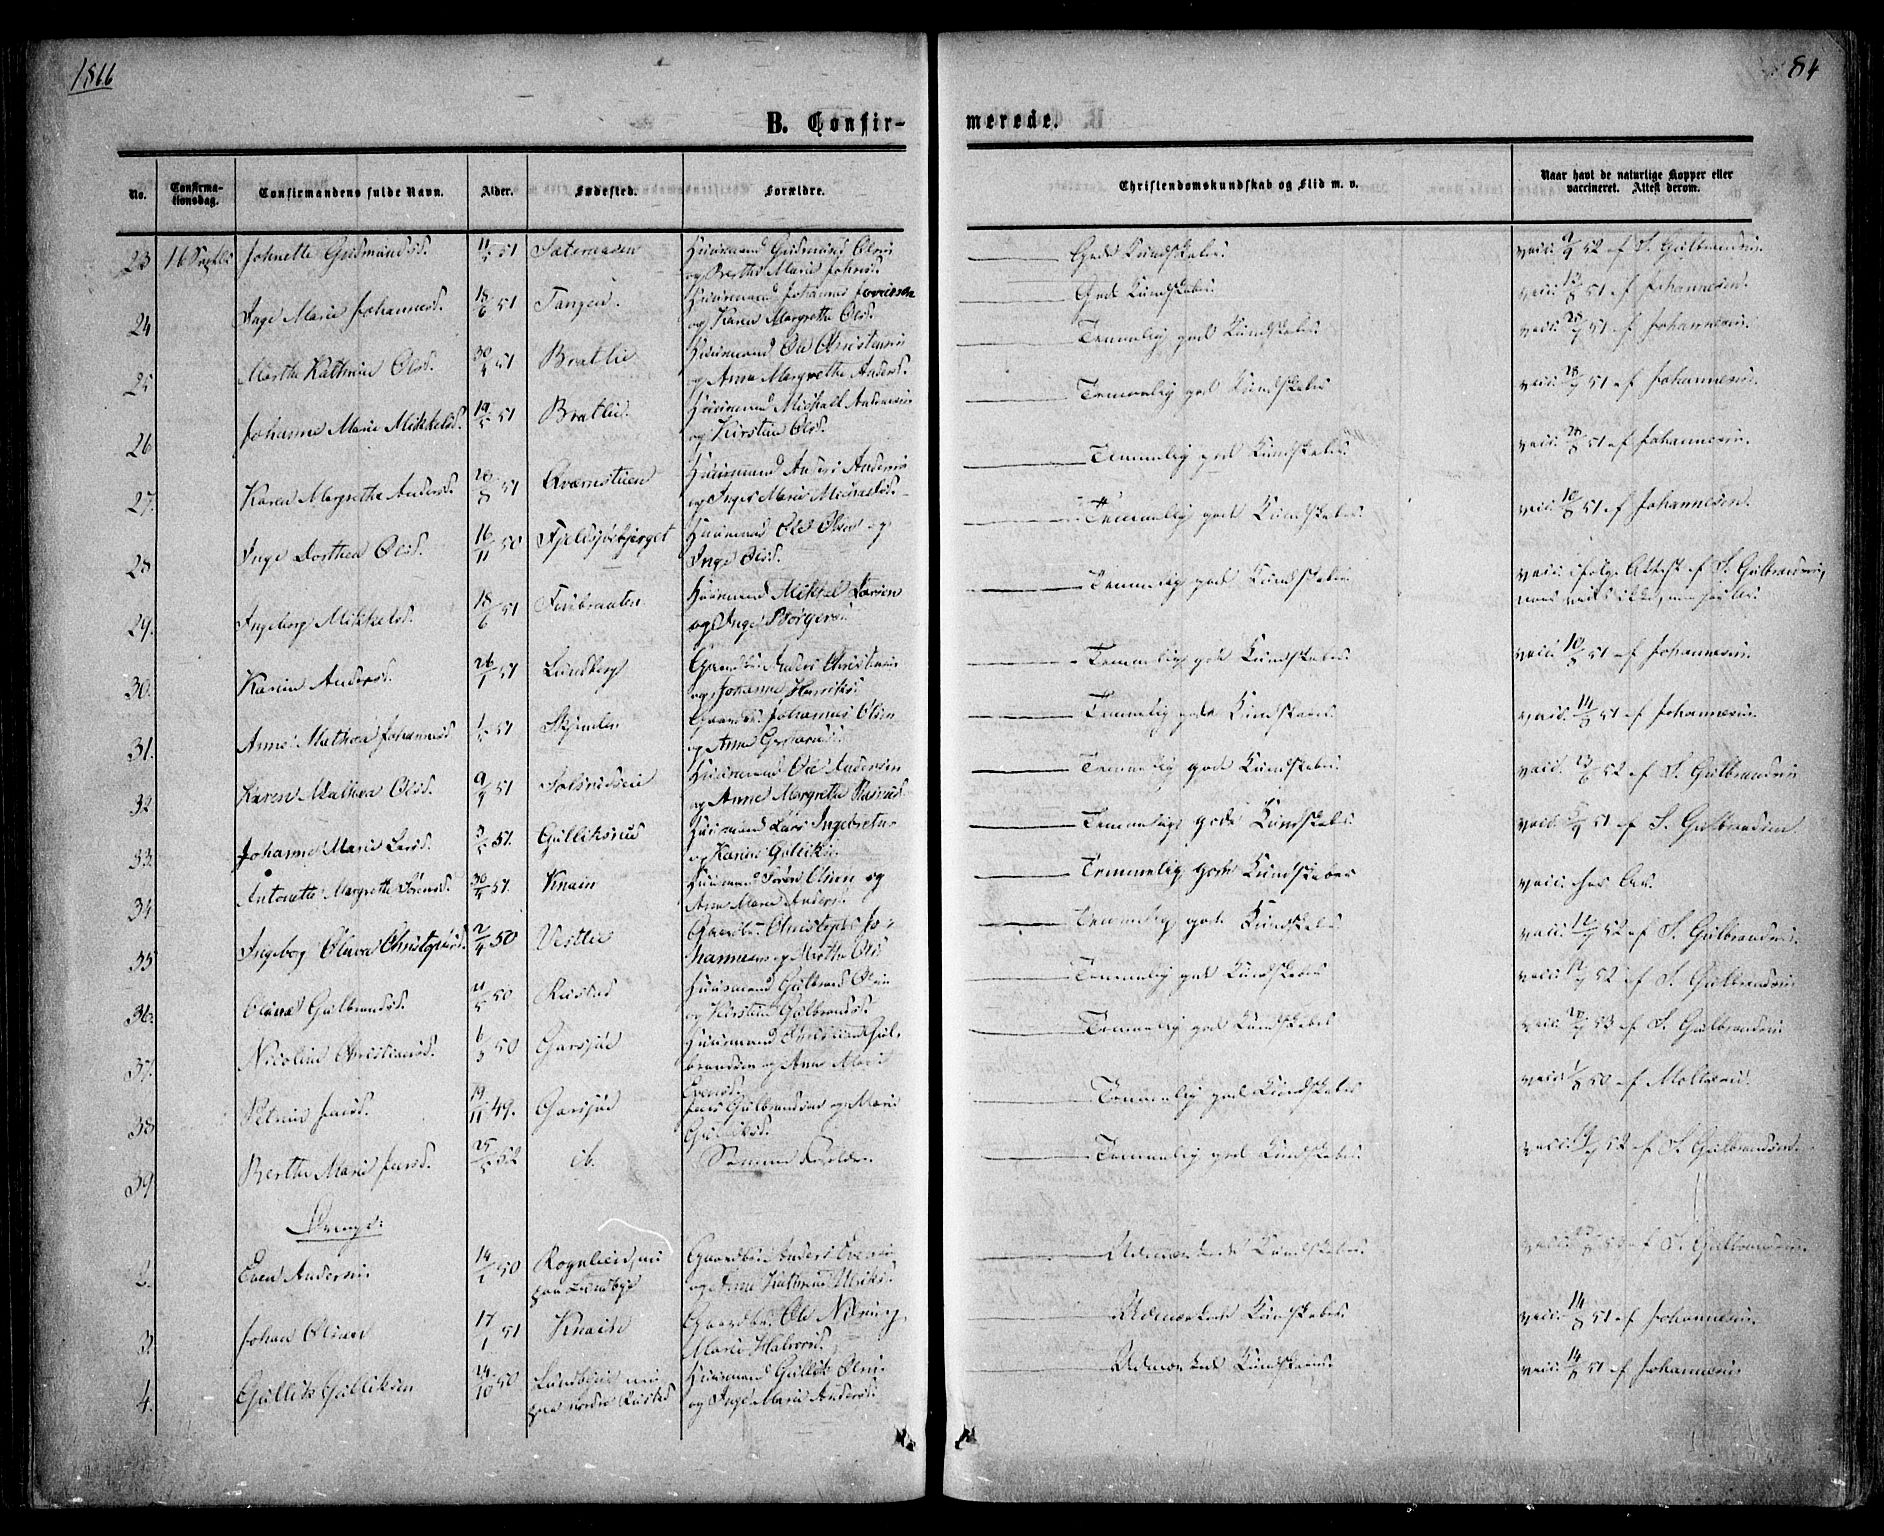 1866
84
B. Confir-
merede.
No.
Confirma-
tionsdag.
Confirmandens fulde Navn.
Alder.
Fødested.
Forældre.
Christendomskundskab og Flid m. v.
Naar havt de naturlige Kopper eller
vaccineret. Attest derom.
23 16 Septbr Johnette Gudmundsd. 11/5 51 Sæternæsen Huusmand Gudmund Olsen
og Berthe Marie Johnsd. Gode Kundskaber. vacc. 52 af S. Gulbrandsen
24 Inge Marie Johannesd. 18/6 51 Tangen. Huusmand Johannes
og Karen Margrethe Olsd. God Kundskaber. vacc. 51 af Johannesen.
25 Marthe Kathrine Olsd. 30/4 51 Bratlie Huusmand Ole Christensen
og Anne Margrethe Andersd. Temmelig god Kundskaber vacc. 51 af Johannesen.
26 Johanne Marie Mikkelsd. 19/5 51 Bratlie. Huusmand Michael Andersen
og Kirstine Olsd. Temmelig god Kundskaber vacc. 51 af Johannesen.
27. Karen Margrethe Andersd. 20/8 51 Kværnstuen Huusmand Anders Andersen
og Inger Marie Michaelsd. Temmelig god Kundskaber. vacc. 51 af Johannesen.
28 Inge Dorthea Olsd. 16/11 50 Fjeldsjøbjerget Huusmand Ole Olsen og
Inge Olsd. Temmelig god Kundskaber. vacc. 10/8 51 af Johannesen.
29. Ingeborg Mikkelsd. 18/6 51 Furubraaten Huusmand Mikkel Larsen
og Inge Børgersd. Temmelig god Kundskaber vacc. ifølge Attest af S. Gulbrandsen,
30. Karen Andersd. 26/1 51 Lundberg Gaardbr. Anders Christensen
og Johanne Henriksd. Temmelig god Kundskaber. vacc. 10/8 51 af Johannesen.
31. Anne Mathea Johannesd. 51 Skjenlen Gaardbr. Johannes Olsen
og Anne Temmelig gode Kundskaber. vacc. 14/8 51 af Johannesen.
32 Karen Mathea Olsd. 9/4 51 Huusmand Ole Andersen
og Anne Margrethe Temmelig god Kundskaber. vacc. 52 af S. Gulbrandsen
33. Johanne Marie Larsd. 51. Gulliksrud Huusmand Lars Ingebretsen
og Karen Gulliksd. Temmelig gode Kundskaber. vacc. 51 af S. Gulbrandsen
34 Antonette Margrethe Sørensd. 30/4 51. Knain Huusmand Søren Olsen og
Anne Marie Andersd. Temmelig gode Kundskaber vacc. har Ar.
35 Ingeborg Oliva Christophersd. 2/4 50 Vestlie Gaardbr. Christopher Jo-
hannesen og Marthe Olsd. Temmelig gode Kundskaber. vacc. 52 af S. Gulbrandsen.
36. Oliane Gulbrandsd. 50 Rustad Huusmand Gulbrand Olsen
og Kirstine Gulbrandsd. Temmelig god Kundskaber vacc. 52 af S. Gulbrandsen
37. Nicoline Christiansd. 6/3 50 Garsjøe Huusmand Christian Gul-
brandsen og Anne Marie
Evensd. Temmelig god Kundskaber vacc. 53 af S. Gulbrandsen
38 Petrine Jensd. 19/11 49. Garsjøe Jens Gulbrandsen og Marie
Gulliksd. Temmelig god Kundskaber vacc. 50 af
39 Berthe Marie Jensd. 25/5 52 ib. Samme Forældre. Temmelig god Kundskaber. vacc. 52 af S. Gulbrandsen
Drenge:
2. Even Andersen 14/1 50 Rognlien, nu
paa Lundbye Gaardbr. Anders Evensen
og Anne Kathrine Ulriksd. Udmærkede Kundskaber. vacc. af S. Gulbrandsen.
3. Johan Olsen 17/1 51 Knain Gaardbr. Ole
Marie Halvorsd. Udmærkede Kundskaber. vacc. 14/8 51 af Johannesen
4. Gullik Gulliksen 24/10 50 Lundbye nu
paa nordre Rustad Huusmand Gullik Olsen
og Inge Marie Andersd. Udmærkede Kundskaber vacc. 14/8 51 af Johannesen